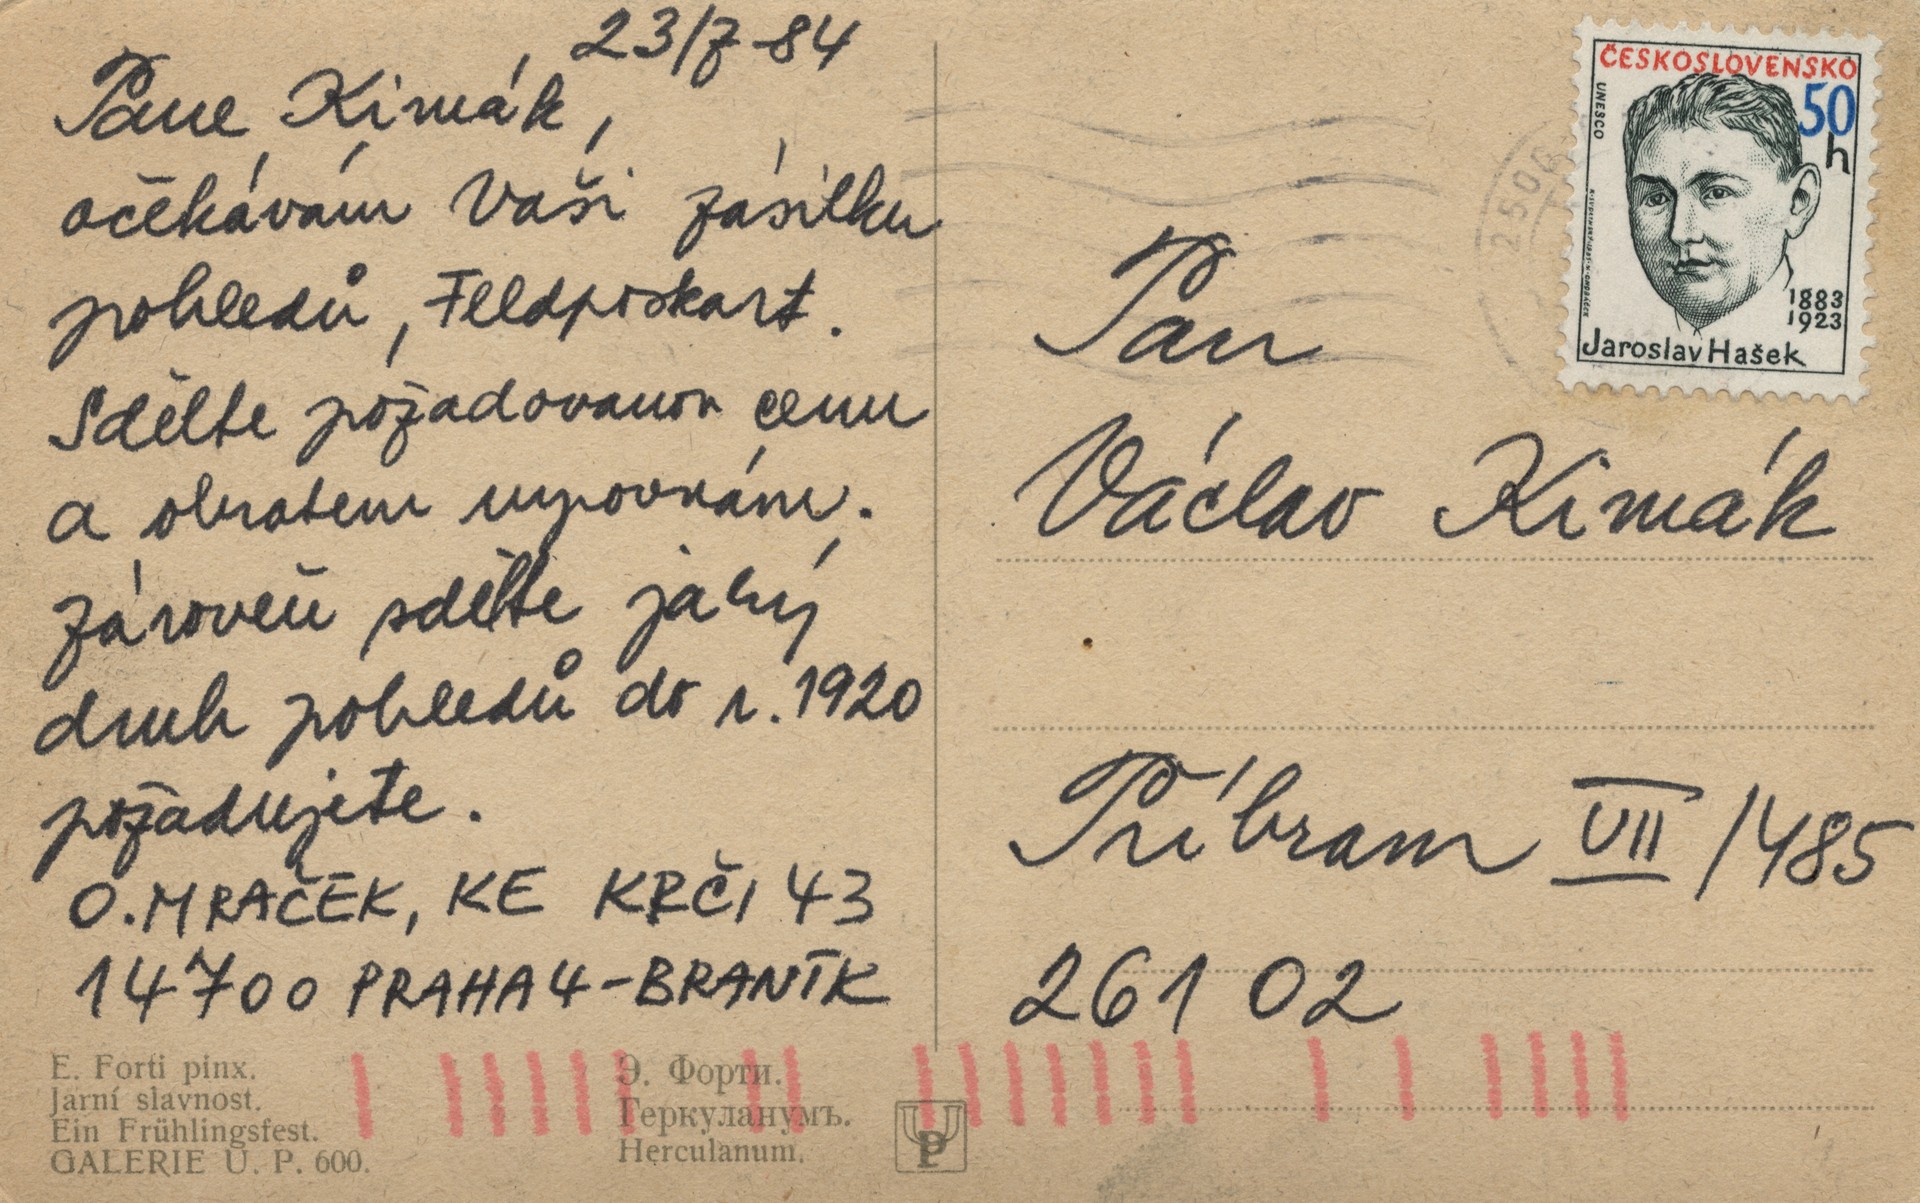 23/7-84
Pane Kimák,
očekávám Vaši zásilku
pohledů, Feldposkart.
Sdělte požadovanou cenu
a obratem vyrovnám.
Zároveň sdělte jaký
druh pohledů do r. 1920
požadujete.
O. MRAČEK, KE KRČI 43
14700 PRAHA 4-BRANÍK
E. Forti pinx.
Jarní slavnost.
Ein Frühlingsfest.
GALERIE U. P. 600.
Э. Форти.
Геркуланумъ.
Herculanum.
UP
ČESKOSLOVENSKO
50
h
UNESCO
1883
1923
Jaroslav Hašek
Pan
Václav Kimák
Příbram VII/485
261 02